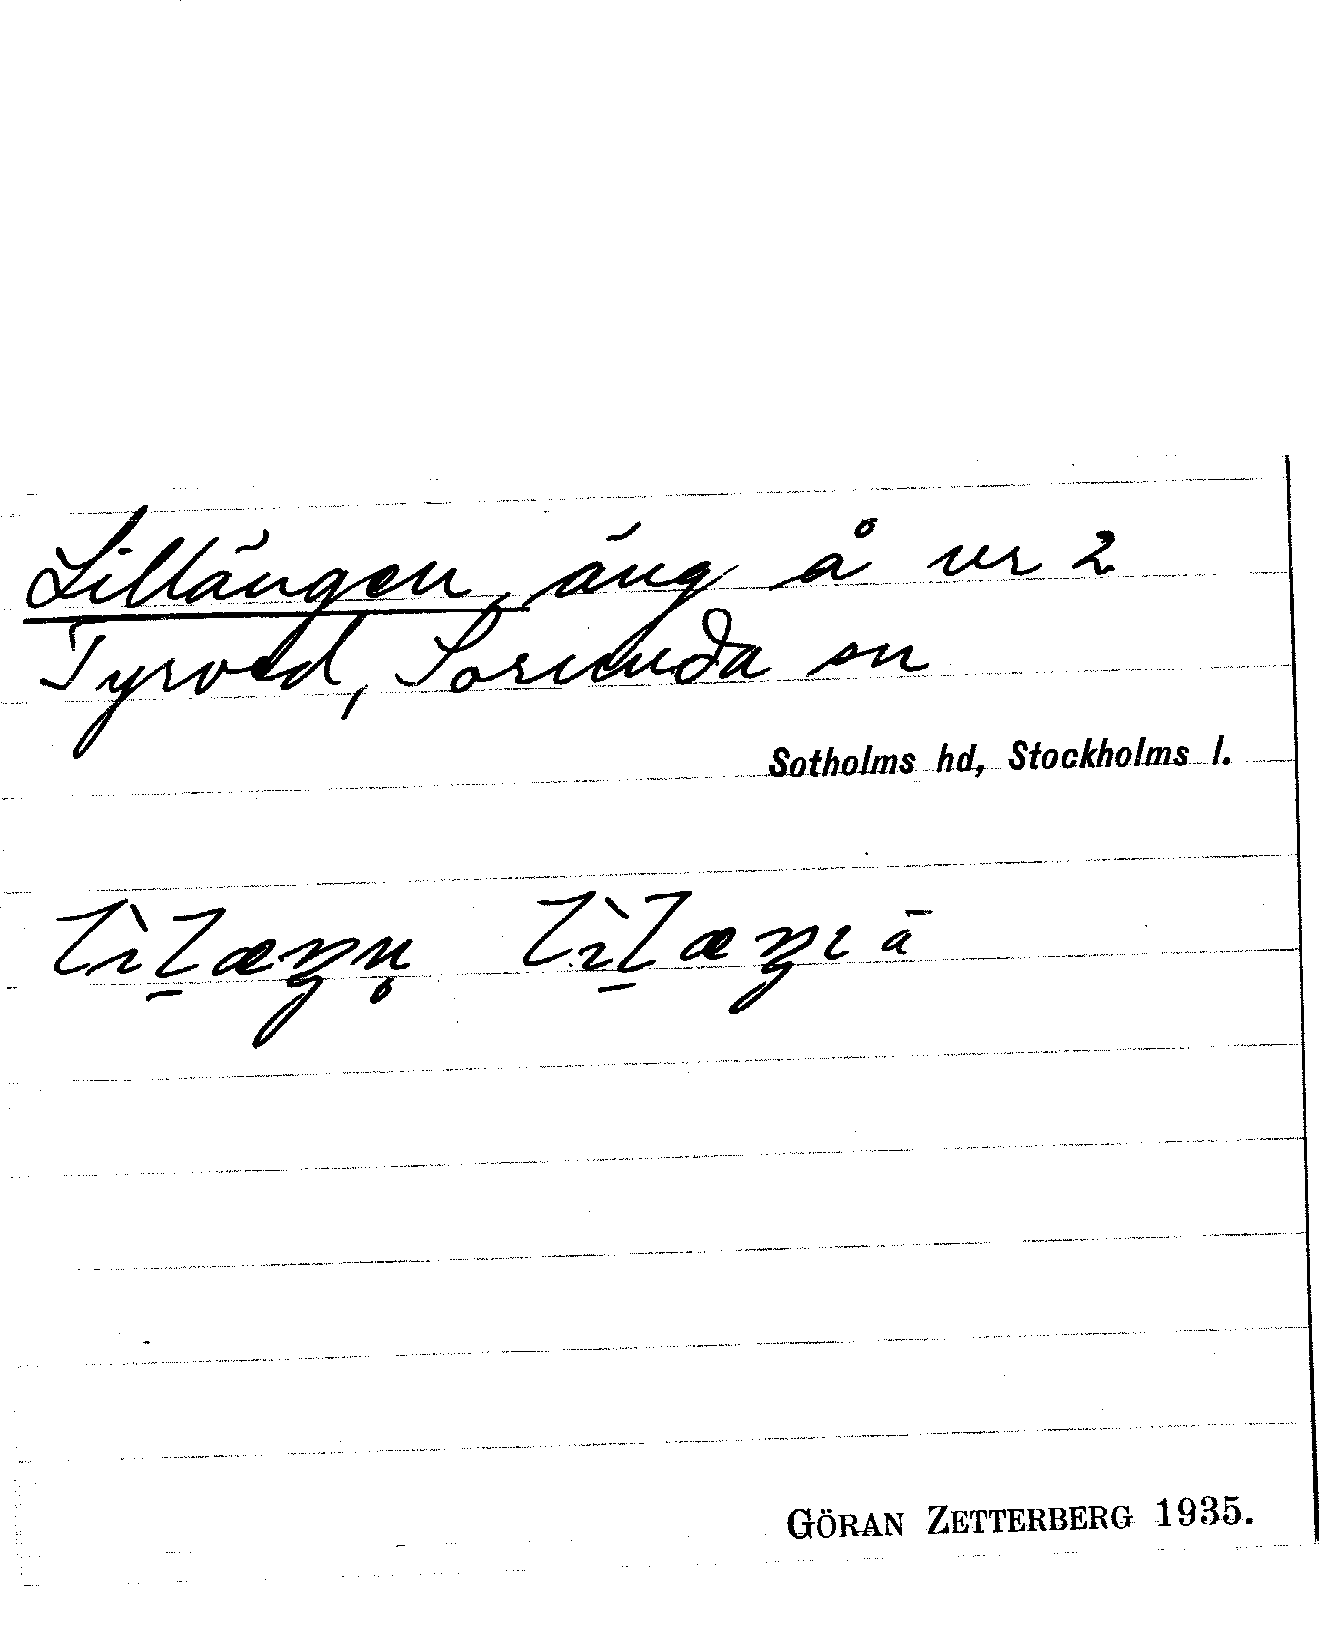 Lillängen, äng å nr 2
Tyrved, Sorunda sn
Sotholms hd, Stockholms l.
lìl̠æŋn̥ lìl̠æŋɩ ā
GÖRAN ZETTERBERG 1935.